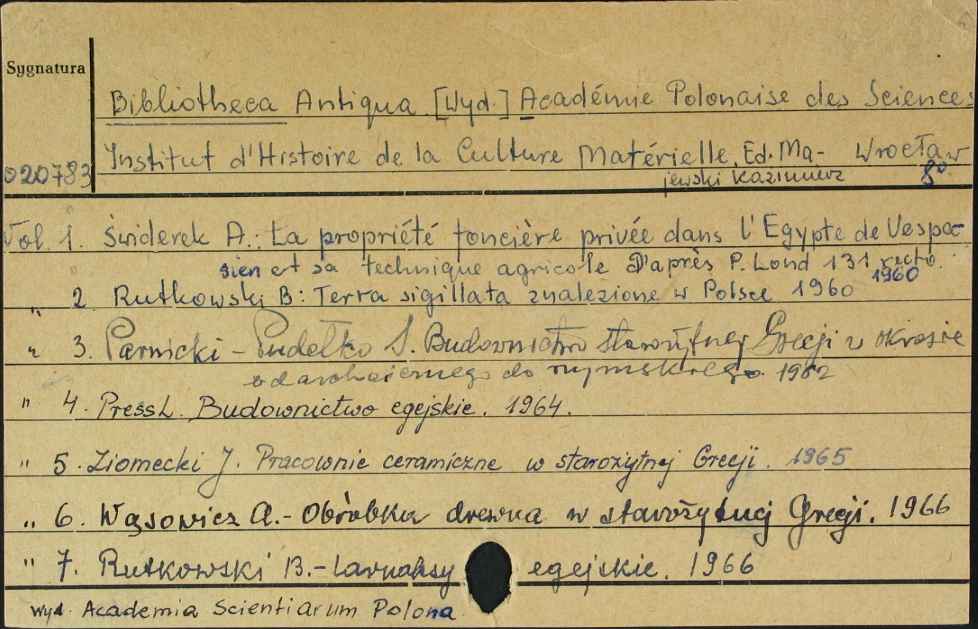 Sygnatura
Bibliotheca Antiqua [Wyd.] Académie Polonaise des Sciences
Institut d'Histoire de la Culture Matérielle. Ed. Ma- Wrocław
020783 jewski Kazimierz 8°
Vol. 1. Świderek A.: La propriété foncière privée dans l'Egypte de Vespa-
sien et sa technique agricole D'après P. Lond 131 recto. 1960
" 2 Rutkowski B: Terra sigillata znalezione w Polsce 1960
" 3. Parnicki-Pudełko S. Budownictwo starożytnej Grecji w okresie
od archaicznego do rzymskiego. 1962
" 4. Press L. Budownictwo egejskie. 1964.
" 5. Ziomecki J. Pracownie ceramiczne w starożytnej Grecji. 1965
" 6. Wąsowicz A.- Obróbka drewna w starożytnej Grecji. 1966
" 7. Rutkowski B.- Larnaksy egejskie. 1966
Wyd. Academia Scientiarum Polona